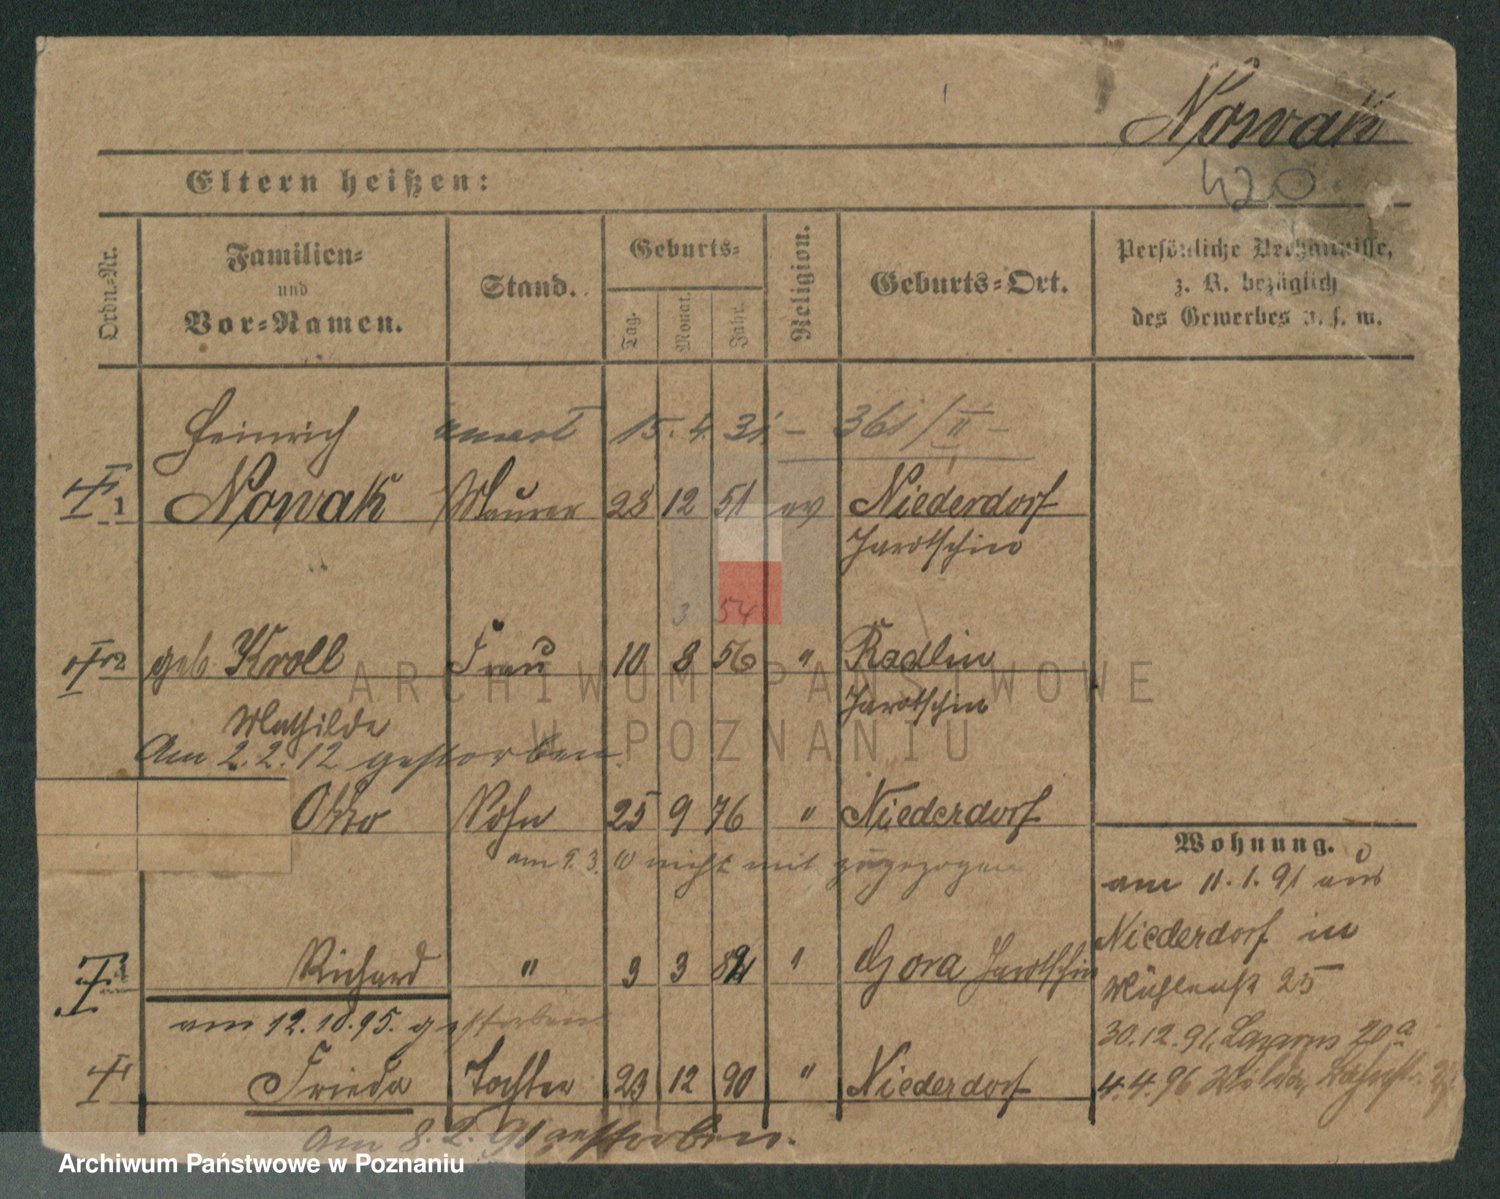 Nowak
420
Eltern heißen:
Ordn.-Nr.
Familien-
und
Vor-Namen.
Stand.
Geburts-
Tag.
Monat.
Jahr.
Religion.
Geburts-Ort.
Persönliche Verhältnisse,
z. B. bezüglich
des Gewerbes u. s. w.
Heinrich 15. 4 31 – 361/II –
1 Nowak Maurer 23 12 51 ev Niederdorf
Jarotschin
3 54
2 geb Kroll Frau 10 8 56 " Radlin
Mathilde Jarotschin
Am 2.2.12 gestorben.
Otto Sohn 25 9 76 " Niederdorf
am 9.3.10 nicht mit zugezogen
Richard " 3 3 84 " Gora Jarotschin
am 12.10.95. gestorben
Frieda Tochter 23 12 90 " Niederdorf
Am 8.2.91 gestorben.
Wohnung.
am 11.1.91 aus
Niederdorf in
Mühlenstr 25
30.12.91. Lazarus 20a
4.4.96 Wilda
ARCHIWUM PAŃSTWOWE
W POZNANIU
Archiwum Państwowe w Poznaniu